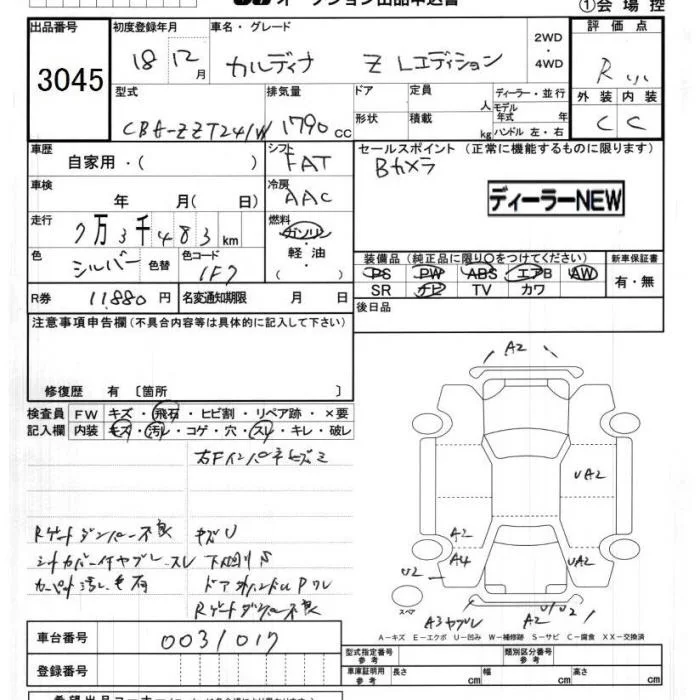 オークション出品申込書
①会場控
出品番号 初度登録年月 車名・グレード 2WD ・ 4WD 評価点
3045 18 12月 カルディナ Z Lエディション R
型式 排気量 ドア 定員 人 ディーラー・並行 外装 内装
CBA-ZZT241W 1790cc 形状 積載 kg モデル年式 年 ハンドル 左・右 C C
車歴 シフト セールスポイント (正常に機能するものに限ります)
自家用・( ) FAT Bカメラ
車検 冷房 ディーラーNEW
年 月( 日) AAC
走行 燃料
7万3千483km ガソリン
色 色替 色コード 軽油 装備品 (純正品に限り○をつけてください) 新車保証書
シルバー 1F7 ( ) PS PW ABS エアB AW 有・無
R券 11,880円 名変通知期限 月 日 SR ナビ TV カワ
注意事項申告欄 (不具合内容等は具体的に記入して下さい) 後日品
修復歴 有 〔箇所 〕
検査員 FW キズ・飛石・ヒビ割・リペア跡・×要
記入欄 内装 キズ・汚レ・コゲ・穴・スレ・キレ・破レ
右Fインパネキズミ
Rゲートダンパー不良 キズU
シートカバー付ヤブレ スレ 下廻りS
カーペット汚レ 毛有 ドアハンドルPワレ
Rゲートダンパー不良
A2
UA2
A2
A4 UA2
U2
スペア
A3ヤブレ A2 U1U2
A-キズ E-エクボ U-凹み W-補修跡 S-サビ C-腐食 XX-交換済
車台番号 0031017
型式指定番号 参考 類別区分番号 参考
登録番号
車庫証明用 参考 長さ cm 幅 cm 高さ cm